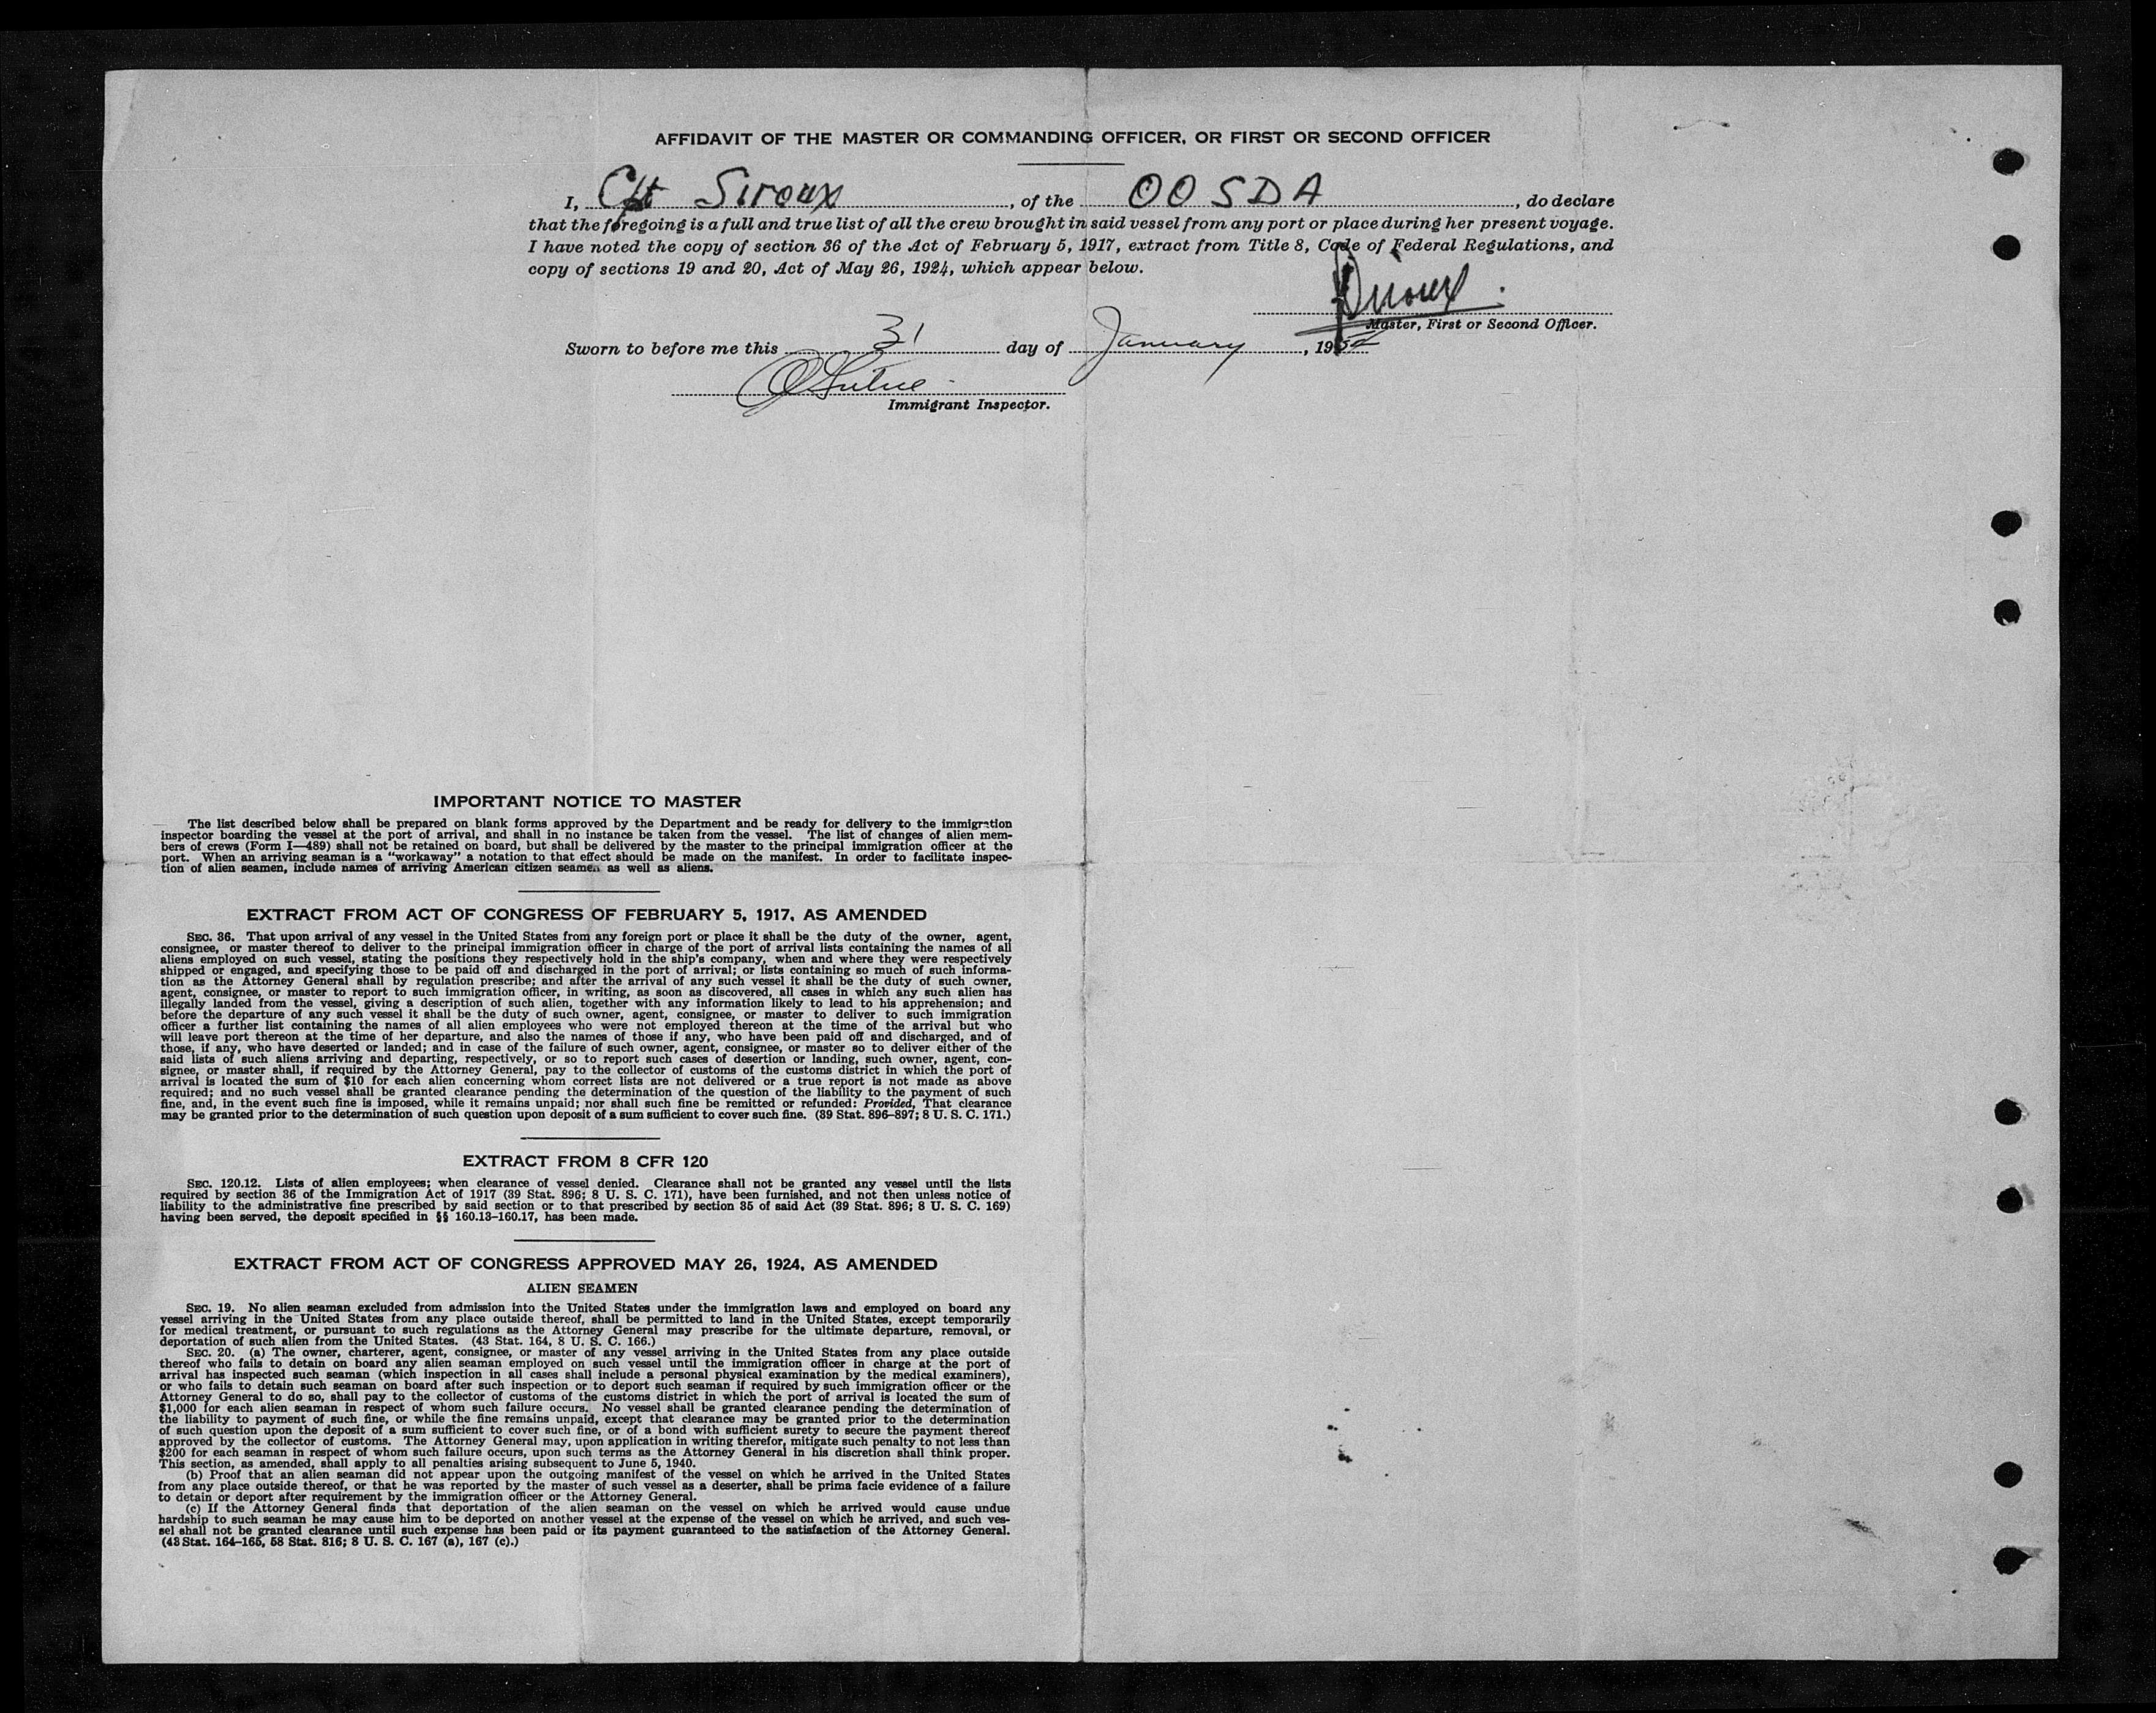 AFFIDAVIT OF THE MASTER OR COMMANDING OFFICER, OR FIRST OR SECOND OFFICER
I, Cpt Siroux, of the OOSDA, do declare
that the foregoing is a full and true list of all the crew brought in said vessel from any port or place during her present voyage.
I have noted the copy of section 36 of the Act of February 5, 1917, extract from Title 8, Code of Federal Regulations, and
copy of sections 19 and 20, Act of May 26, 1924, which appear below.
Master, First or Second Officer.
Sworn to before me this 31 day of January, 1952
Immigrant Inspector.
IMPORTANT NOTICE TO MASTER
The list described below shall be prepared on blank forms approved by the Department and be ready for delivery to the immigration
inspector boarding the vessel at the port of arrival, and shall in no instance be taken from the vessel. The list of changes of alien mem-
bers of crews (Form I—489) shall not be retained on board, but shall be delivered by the master to the principal immigration officer at the
port. When an arriving seaman is a "workaway" a notation to that effect should be made on the manifest. In order to facilitate inspec-
tion of alien seamen, include names of arriving American citizen seamen as well as aliens.
EXTRACT FROM ACT OF CONGRESS OF FEBRUARY 5, 1917, AS AMENDED
SEC. 36. That upon arrival of any vessel in the United States from any foreign port or place it shall be the duty of the owner, agent,
consignee, or master thereof to deliver to the principal immigration officer in charge of the port of arrival lists containing the names of all
aliens employed on such vessel, stating the positions they respectively hold in the ship's company, when and where they were respectively
shipped or engaged, and specifying those to be paid off and discharged in the port of arrival; or lists containing so much of such informa-
tion as the Attorney General shall by regulation prescribe; and after the arrival of any such vessel it shall be the duty of such owner,
agent, consignee, or master to report to such immigration officer, in writing, as soon as discovered, all cases in which any such alien has
illegally landed from the vessel, giving a description of such alien, together with any information likely to lead to his apprehension; and
before the departure of any such vessel it shall be the duty of such owner, agent, consignee, or master to deliver to such immigration
officer a further list containing the names of all alien employees who were not employed thereon at the time of the arrival but who
will leave port thereon at the time of her departure, and also the names of those if any, who have been paid off and discharged, and of
those, if any, who have deserted or landed; and in case of the failure of such owner, agent, consignee, or master so to deliver either of the
said lists of such aliens arriving and departing, respectively, or so to report such cases of desertion or landing, such owner, agent, con-
signee, or master shall, if required by the Attorney General, pay to the collector of customs of the customs district in which the port of
arrival is located the sum of $10 for each alien concerning whom correct lists are not delivered or a true report is not made as above
required; and no such vessel shall be granted clearance pending the determination of the question of the liability to the payment of such
fine, and, in the event such fine is imposed, while it remains unpaid; nor shall such fine be remitted or refunded: Provided, That clearance
may be granted prior to the determination of such question upon deposit of a sum sufficient to cover such fine. (39 Stat. 896–897; 8 U. S. C. 171.)
EXTRACT FROM 8 CFR 120
SEC. 120.12. Lists of alien employees; when clearance of vessel denied. Clearance shall not be granted any vessel until the lists
required by section 36 of the Immigration Act of 1917 (39 Stat. 896; 8 U. S. C. 171), have been furnished, and not then unless notice of
liability to the administrative fine prescribed by said section or to that prescribed by section 35 of said Act (39 Stat. 896; 8 U. S. C. 169)
having been served, the deposit specified in §§ 160.13–160.17, has been made.
EXTRACT FROM ACT OF CONGRESS APPROVED MAY 26, 1924, AS AMENDED
ALIEN SEAMEN
SEC. 19. No alien seaman excluded from admission into the United States under the immigration laws and employed on board any
vessel arriving in the United States from any place outside thereof, shall be permitted to land in the United States, except temporarily
for medical treatment, or pursuant to such regulations as the Attorney General may prescribe for the ultimate departure, removal, or
deportation of such alien from the United States. (43 Stat. 164, 8 U. S. C. 166.)
SEC. 20. (a) The owner, charterer, agent, consignee, or master of any vessel arriving in the United States from any place outside
thereof who fails to detain on board any alien seaman employed on such vessel until the immigration officer in charge at the port of
arrival has inspected such seaman (which inspection in all cases shall include a personal physical examination by the medical examiners),
or who fails to detain such seaman on board after such inspection or to deport such seaman if required by such immigration officer or the
Attorney General to do so, shall pay to the collector of customs of the customs district in which the port of arrival is located the sum of
$1,000 for each alien seaman in respect of whom such failure occurs. No vessel shall be granted clearance pending the determination of
the liability to payment of such fine, or while the fine remains unpaid, except that clearance may be granted prior to the determination
of such question upon the deposit of a sum sufficient to cover such fine, or of a bond with sufficient surety to secure the payment thereof
approved by the collector of customs. The Attorney General may, upon application in writing therefor, mitigate such penalty to not less than
$200 for each seaman in respect of whom such failure occurs, upon such terms as the Attorney General in his discretion shall think proper.
This section, as amended, shall apply to all penalties arising subsequent to June 5, 1940.
(b) Proof that an alien seaman did not appear upon the outgoing manifest of the vessel on which he arrived in the United States
from any place outside thereof, or that he was reported by the master of such vessel as a deserter, shall be prima facie evidence of a failure
to detain or deport after requirement by the immigration officer or the Attorney General.
(c) If the Attorney General finds that deportation of the alien seaman on the vessel on which he arrived would cause undue
hardship to such seaman he may cause him to be deported on another vessel at the expense of the vessel on which he arrived, and such ves-
sel shall not be granted clearance until such expense has been paid or its payment guaranteed to the satisfaction of the Attorney General.
(43 Stat. 164–165, 58 Stat. 816; 8 U. S. C. 167 (a), 167 (c).)